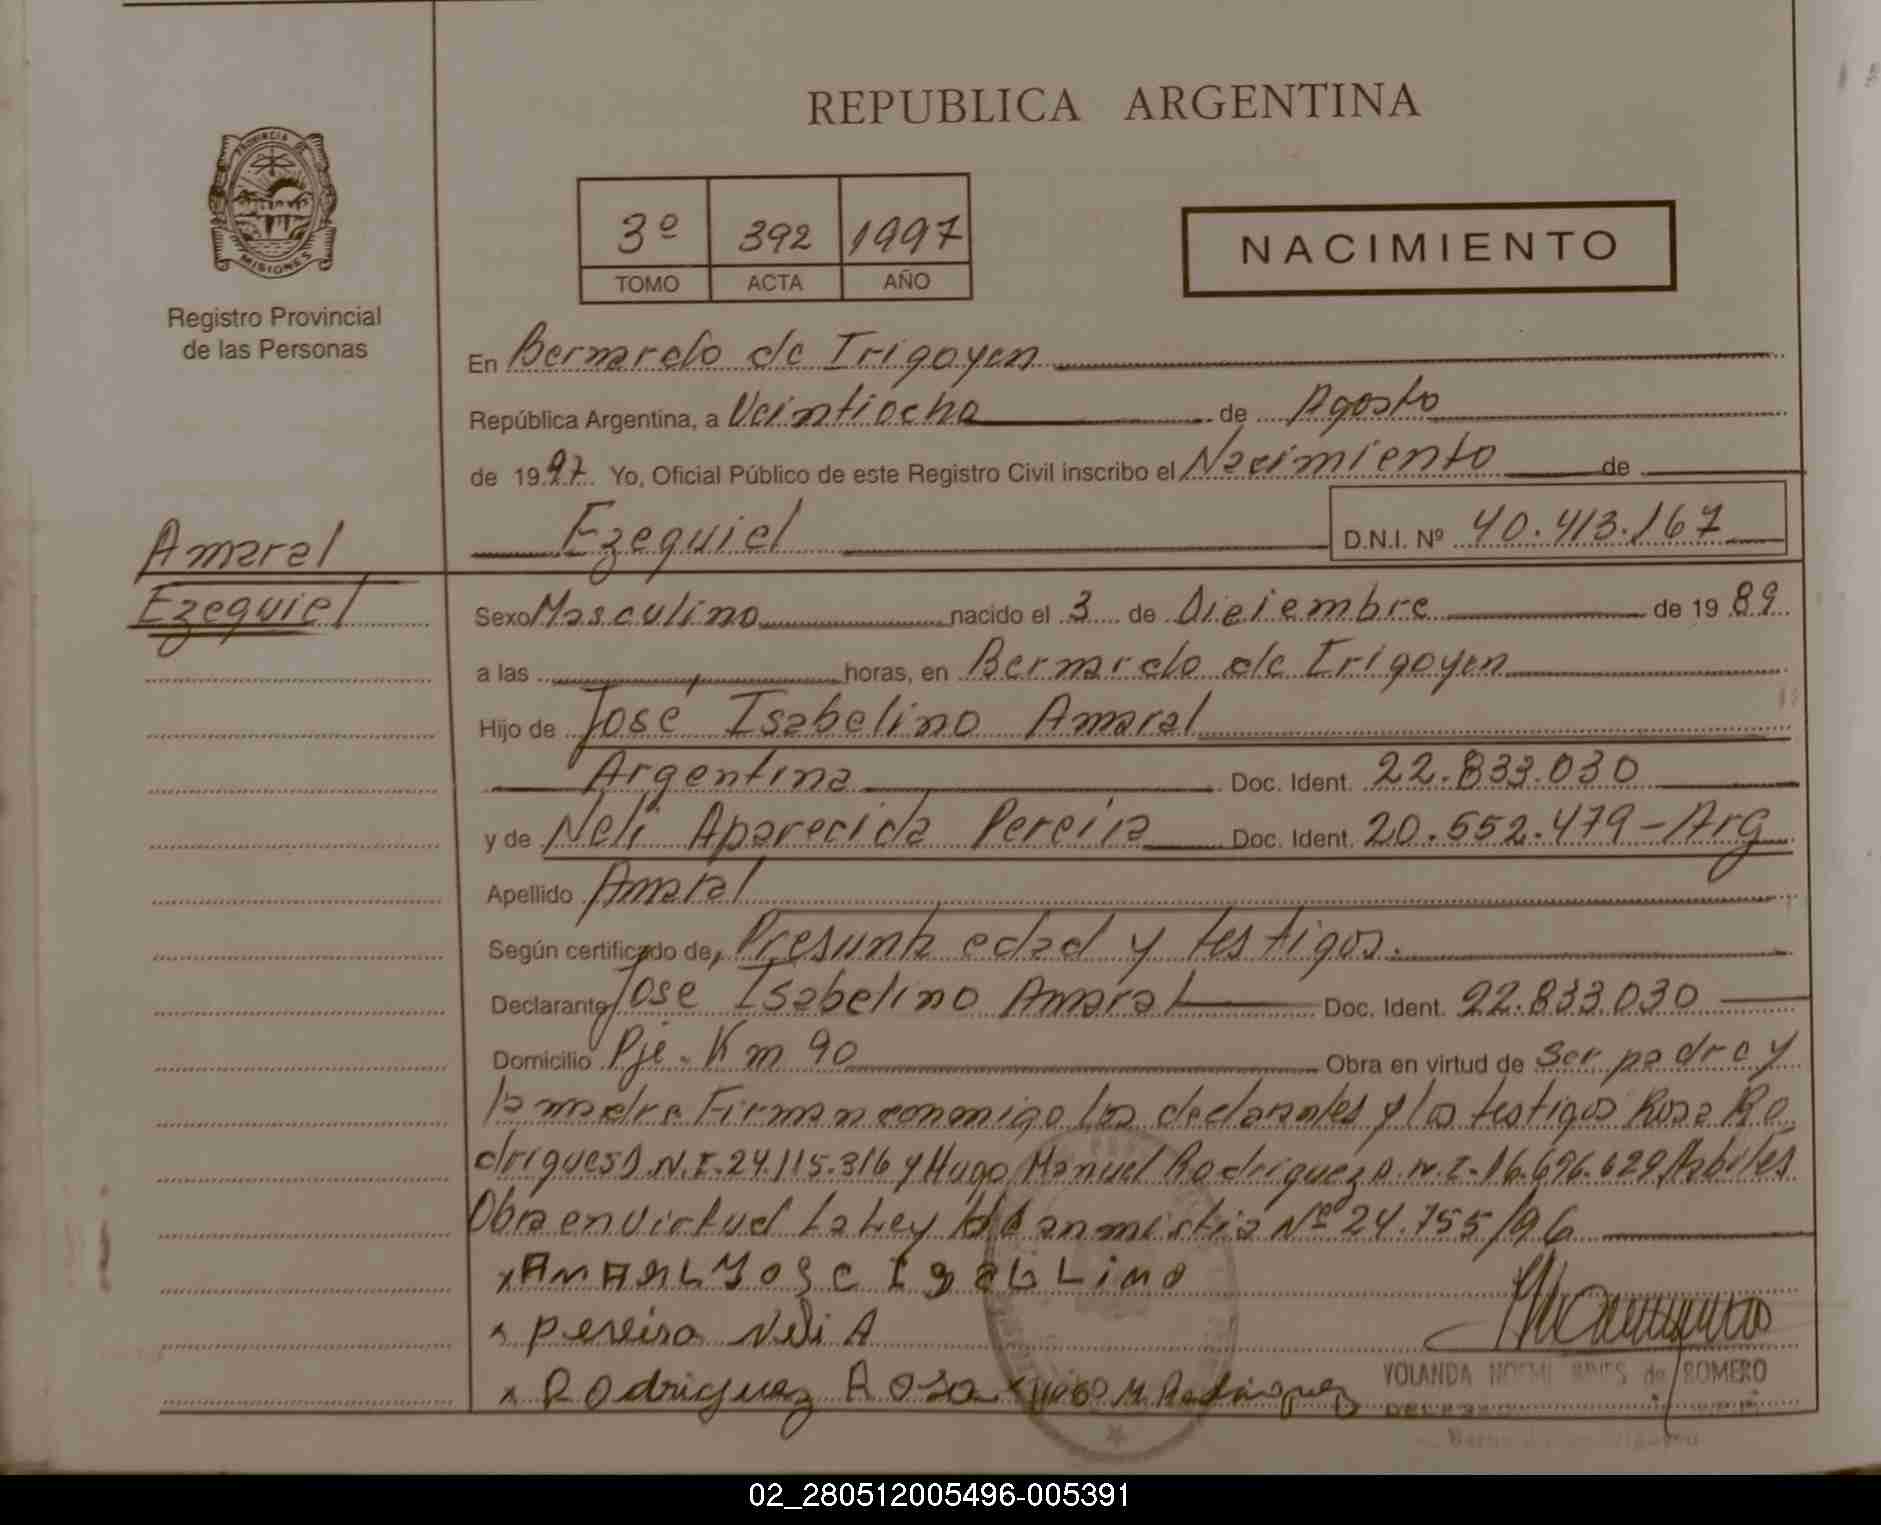 REPUBLICA ARGENTINA
PROVINCIA DE
MISIONES
Registro Provincial
de las Personas
3º 392 1997
TOMO ACTA AÑO
NACIMIENTO
En Bernardo de Irigoyen
República Argentina, a Veintiocho de Agosto
de 1997. Yo, Oficial Público de este Registro Civil inscribo el Nacimiento de
Ezequiel D.N.I. Nº 40.413.167
Amaral
Ezequiel
Sexo Masculino nacido el 3 de Diciembre de 1989
a las horas, en Bernardo de Irigoyen
Hijo de José Isabelino Amaral
Argentina Doc. Ident. 22.833.030
y de Neli Aparecida Pereira Doc. Ident. 20.552.479-Arg
Apellido Amaral
Según certificado de, Presunta edad y testigos.
Declarante José Isabelino Amaral Doc. Ident. 22.833.030
Domicilio Pje. Km 90 Obra en virtud de ser padre y
la madre Firman conmigo los declarantes y los testigos Rosa Ro
drigues D.N.I-24.115.316 y Hugo Manuel Rodriguez D.N.I-16.696.629 Habiles
Obra en virtud la Ley de anmistia Nº 24.755/96
x AMARAL JOSE ISabeLino
x pereira Neli A
x Rodriguez Rosa x Hugo M. Rodriguez
YOLANDA NOEMI de ROMERO
02_280512005496-005391